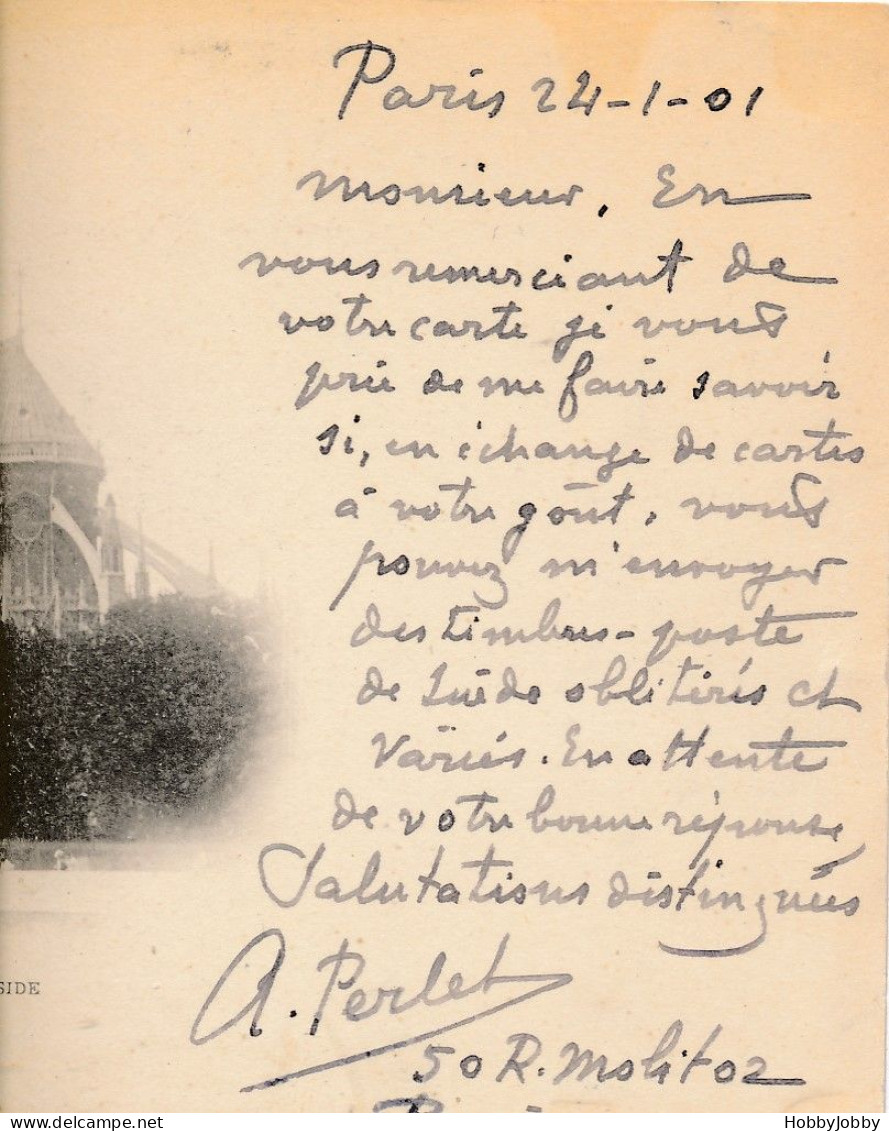 Paris 24-1-01
Monsieur, En
vous remerciant de
votre carte je vous
prie de me faire savoir
si, en échange de cartes
à votre goût, vous
pouvez m'envoyer
des timbres-poste
de Suède oblitérés et
variés. En attente
de votre bonne réponse
Salutations distinguées
A. Perlet
50 R. Molitor
SIDE
HobbyJobby